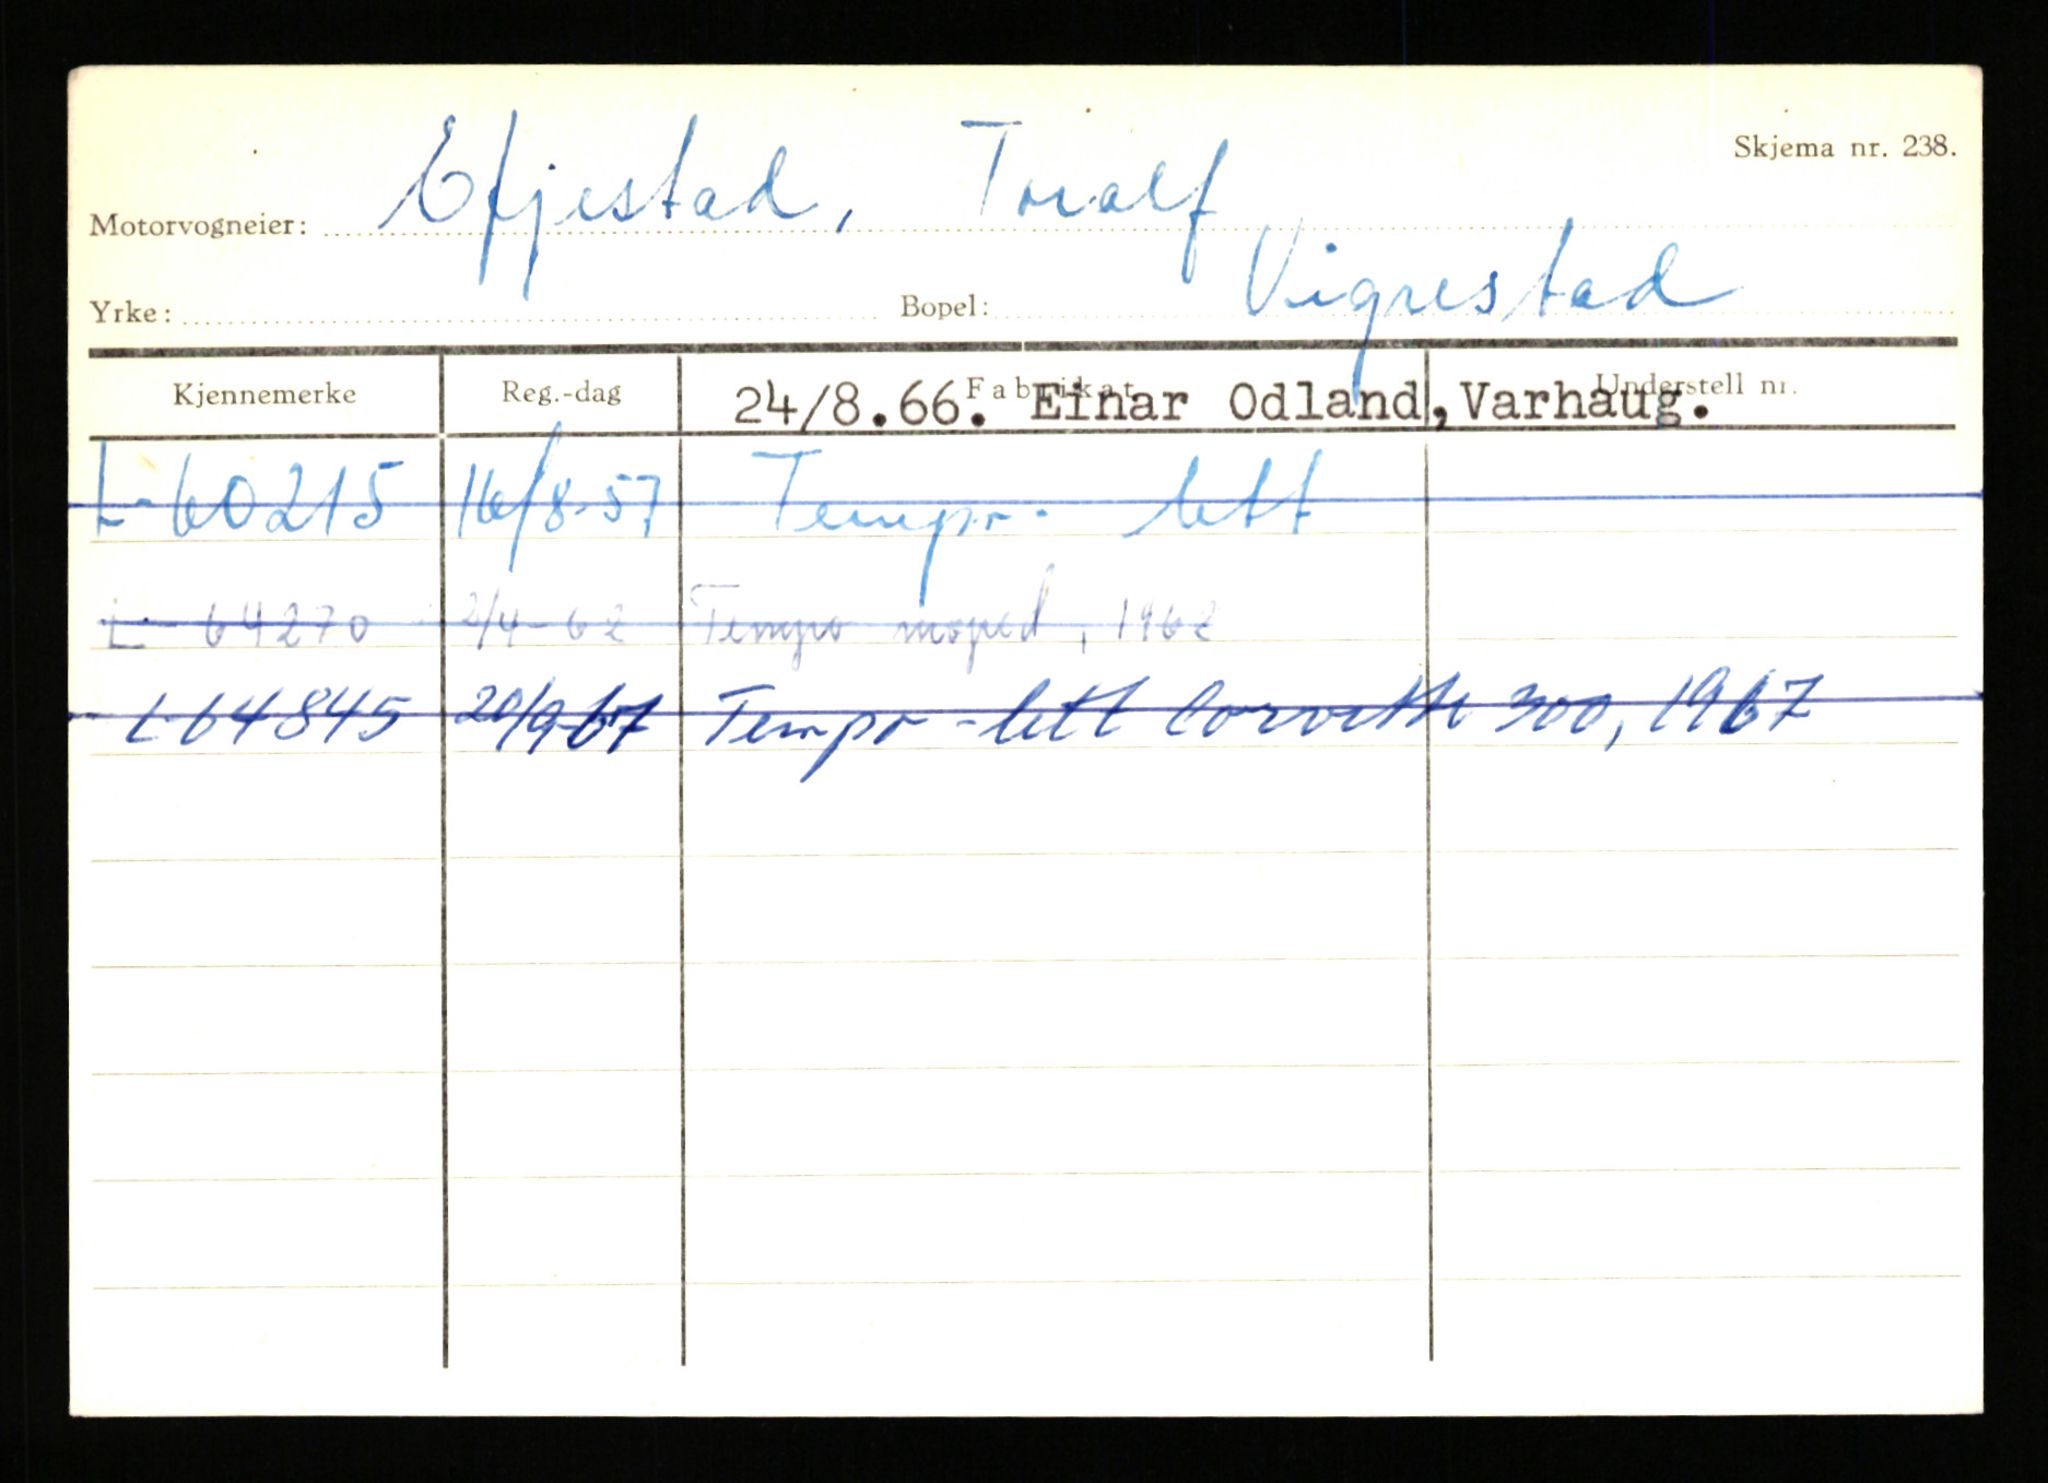 Skjema nr. 238.
Motorvogneier: Efjestad, Toralf
Yrke: Bopel: Vigrestad
Kjennemerke Reg.-dag Fabrikat Understell nr.
24/8.66. Einar Odland, Varhaug.
L-60215 16/8-57 Tempo- lett
L- 64270 2/4-62 Tempo moped, 1962
L-64845 20/9-67 Tempo-lett Corvette 300, 1967